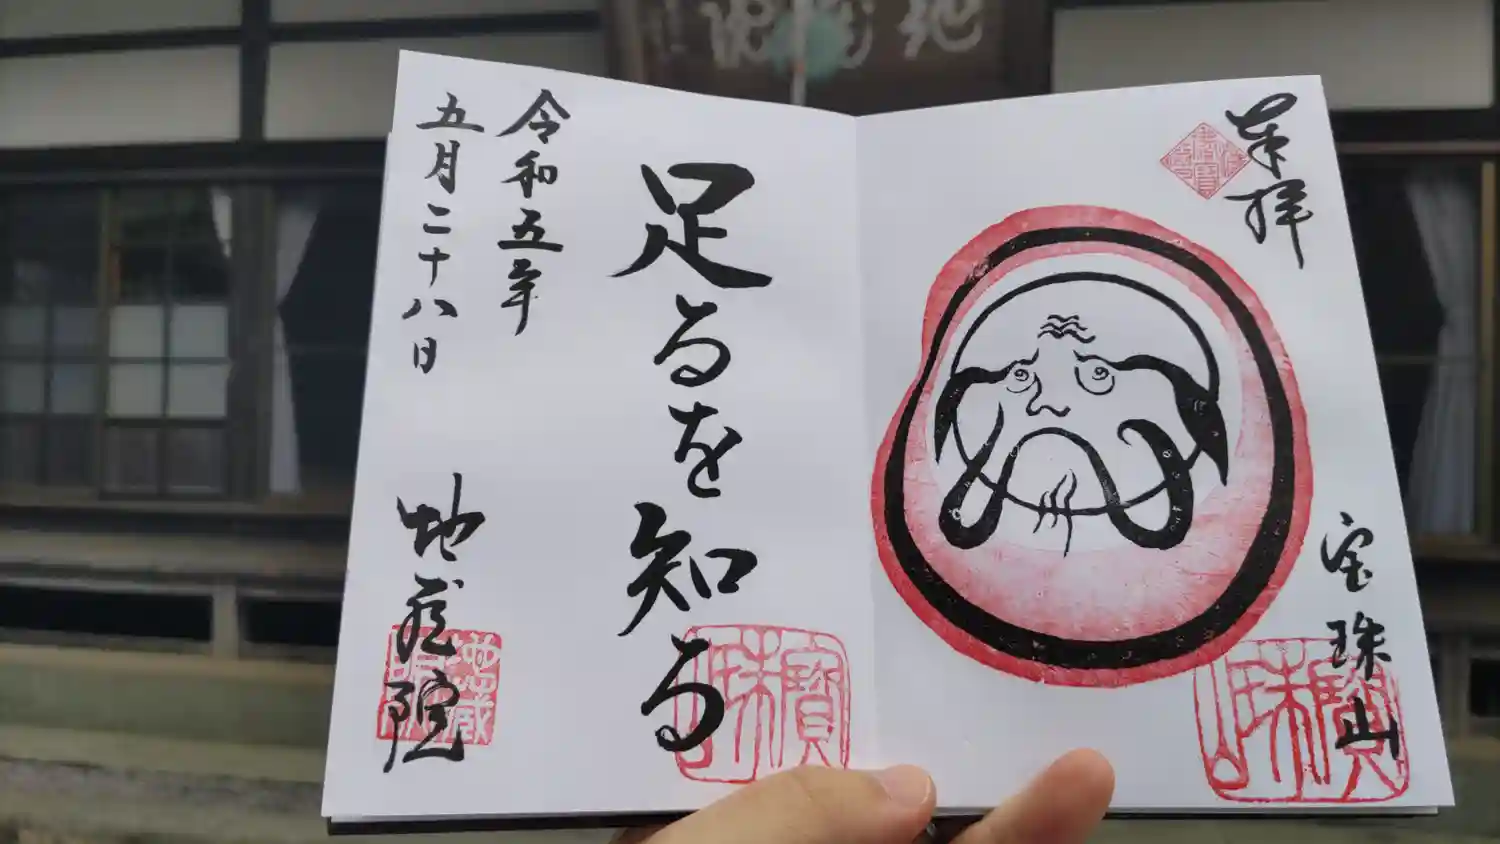 奉拝
宝珠山
足るを知る
令和五年
五月二十八日
地蔵院
寶珠山
寶珠山
地蔵院